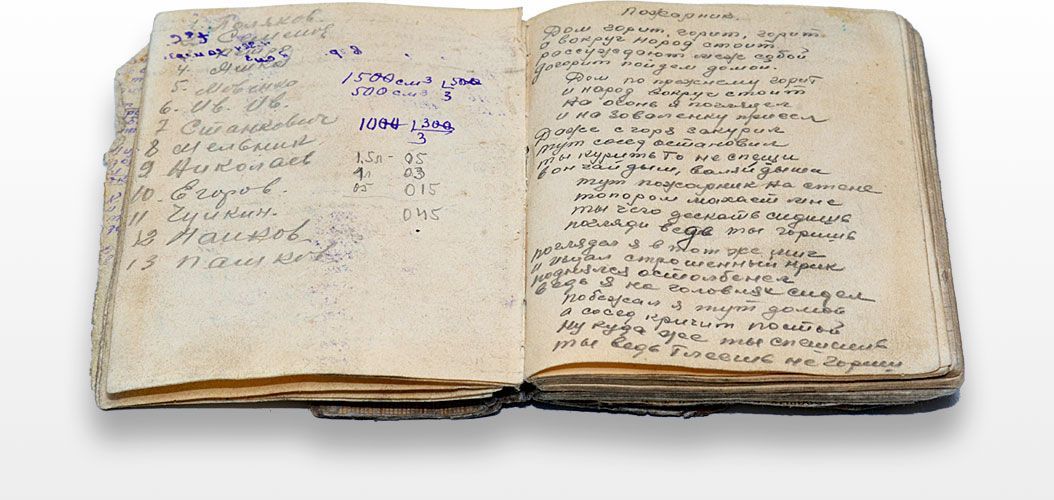 1 Поляков.
2 Семенов
4 Яшков
5. Мовенко
6. Ив. Ив.
7 Станкович
8 Мельник
9 Николаев
10. Егоров.
11 Чуйкин.
12 Панков
13 Пашков
1500 см3 1500
500 см3 3
1000 1300
3
1.5л - 05
1л 03
05 015
045
Пожарник.
Дом горит, горит, горит
а вокруг народ стоит
рассуждают меж собой
догорит пойдем домой.
Дом по прежнему горит
и народ вокруг стоит
На огонь я погляделл
и на заваленку присел
Даже с горя закурил
тут сосед остановил
ты курить то не спеши
вон гайдым, валяй дыши
тут пожарник на стене
топором махает мне
ты чего дескать сидишь
погляди ведь ты горишь
поглядел я в тот же миг
и издал страшенный крик
поднялся остолбенел
ведь я на головнях сидел
побежал я тут домой
а сосед кричит постой
ну куда же ты спешишь
ты ведь тлеешь не горишь